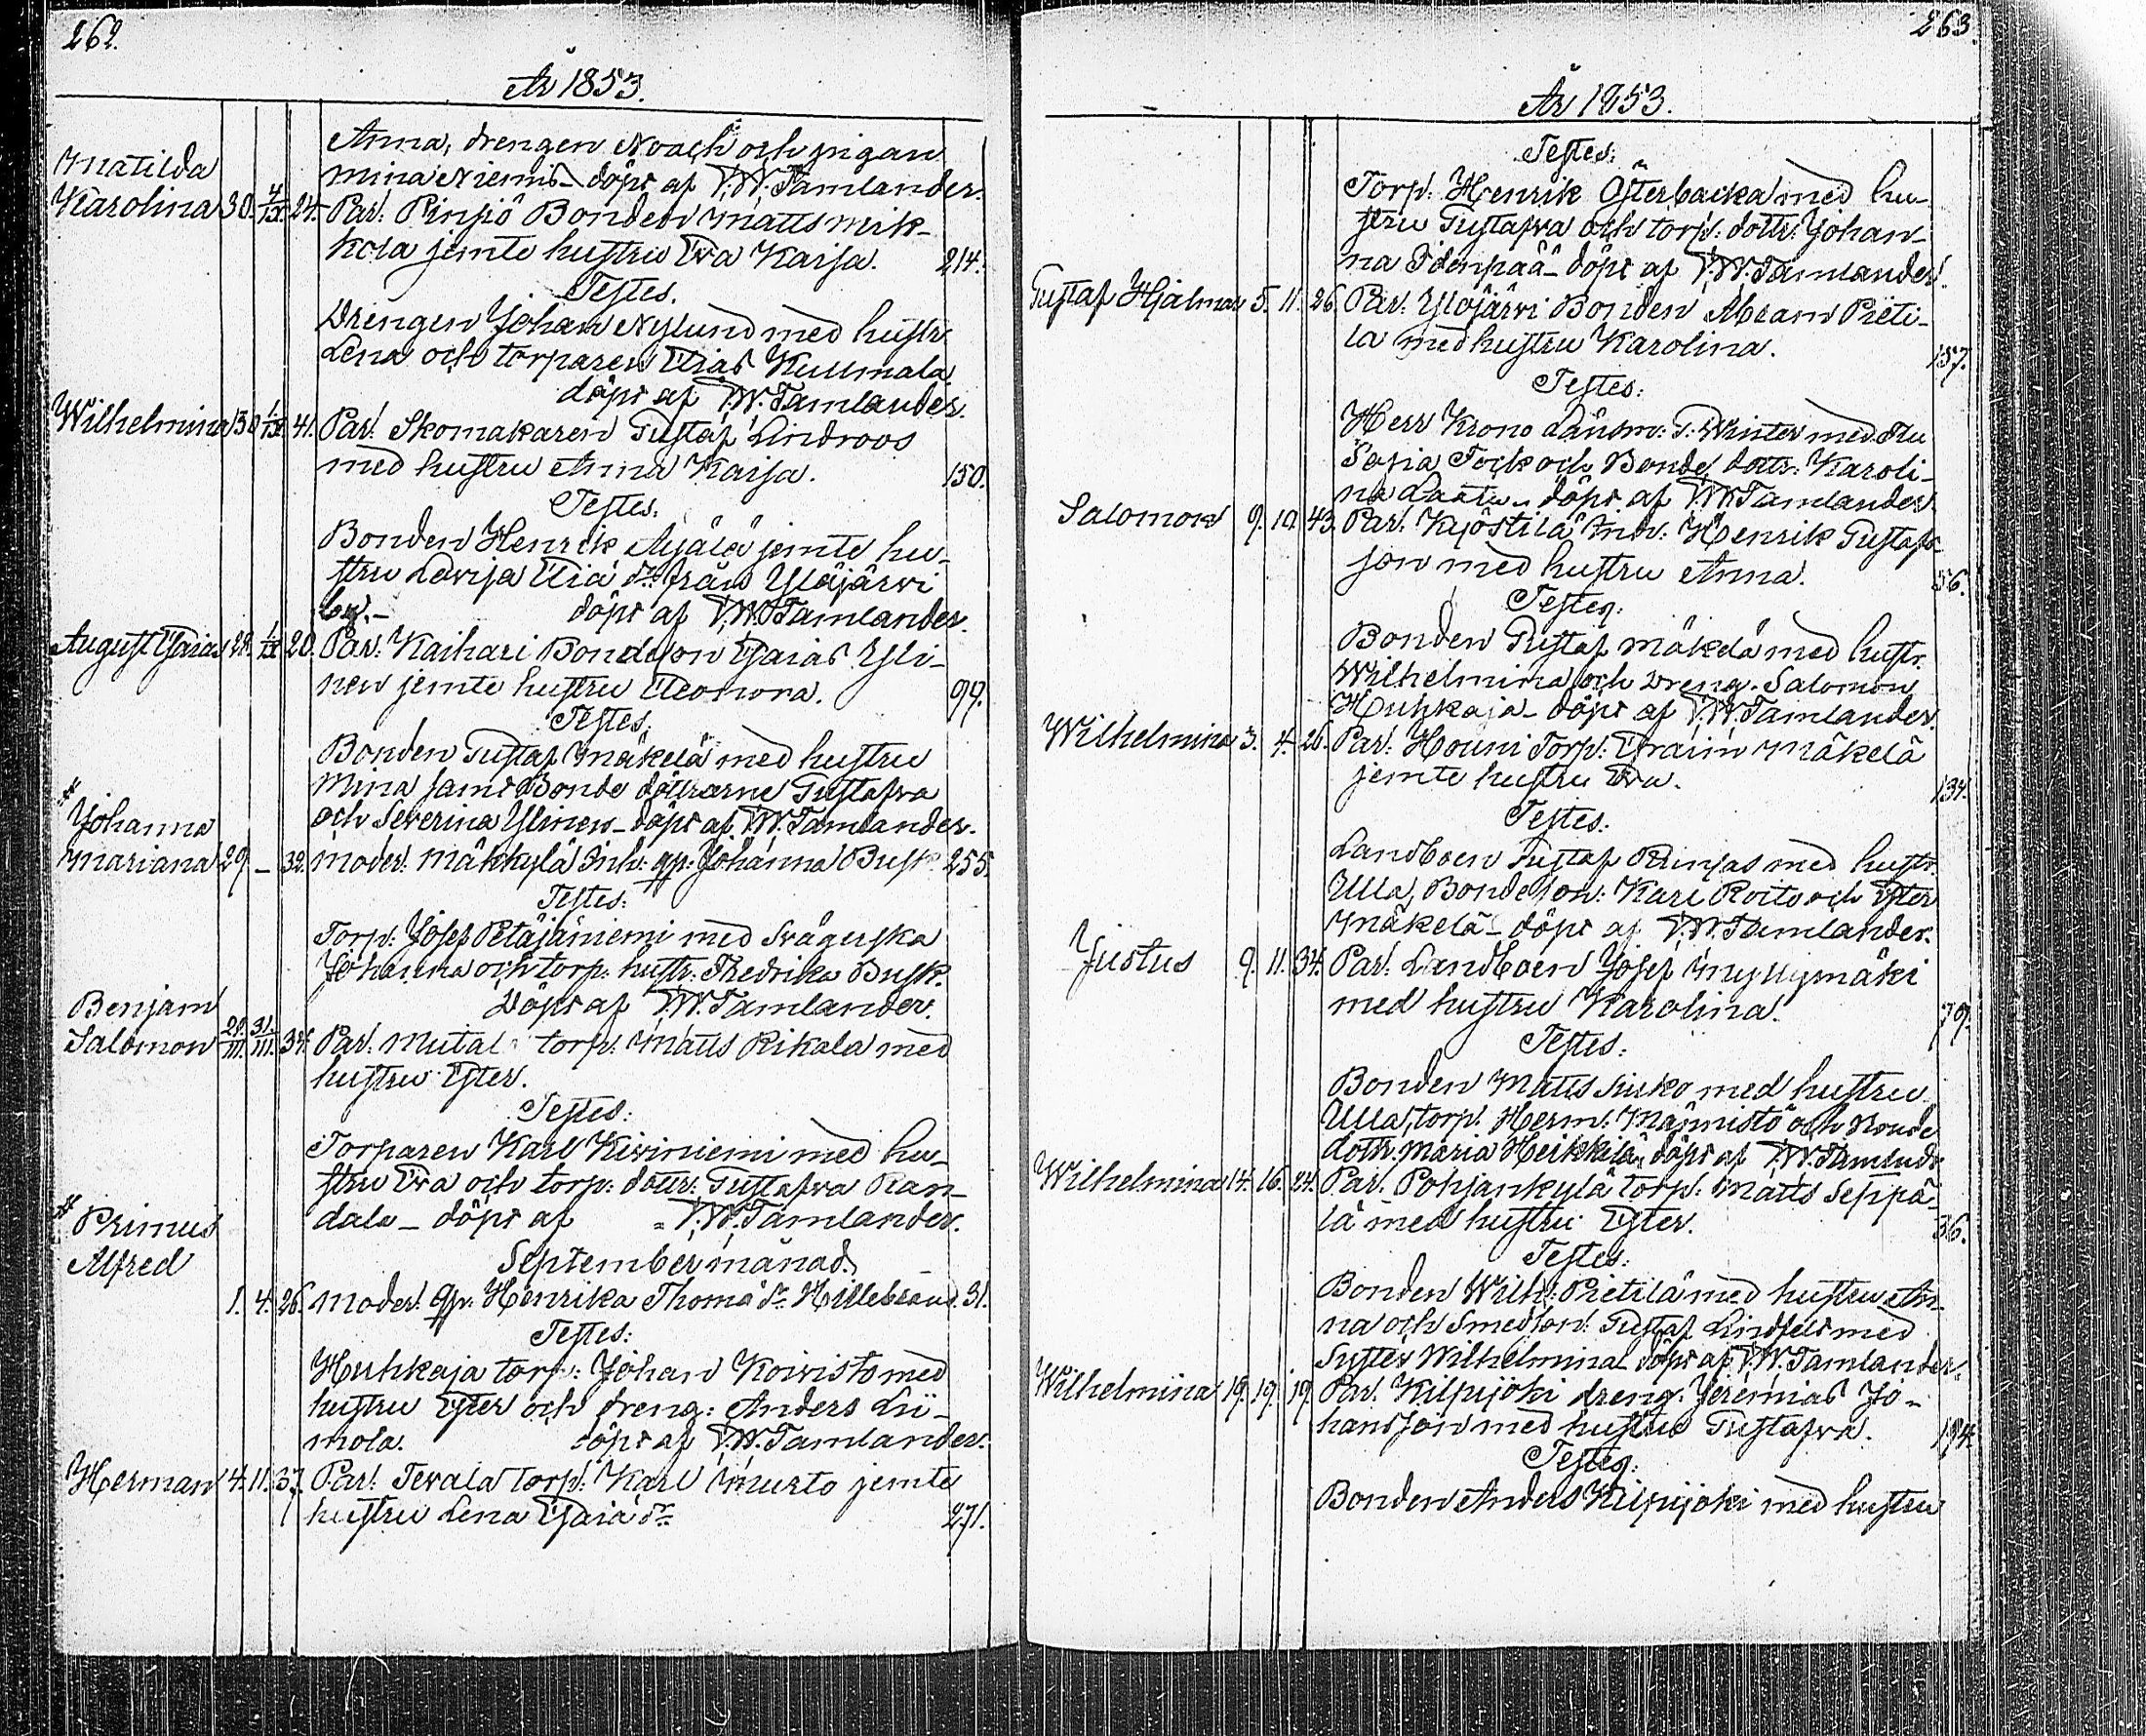 262.
År 1853.
Anna, drengen Noach och pigan
Matilda
Mina Niemis döpt af V.W. Tamlander.
Karolina 30. 4/IX. 24. Par: Pinsiö Bonden Matts Mik-
kola jemte hustru Eva Kaisa. 214.
Testes.
Drengen Johan Nylund med hustr.
Lena och torparen Elias Kuumala
döpt af V.W. Tamlander.
Wilhelmina 30 1/IX. 41. Par: Skomakaren Gustaf Lindroos
med hustru Anna Kaisa. 150.
Testes:
Bonden Henrik Äijälä jemte hu-
stru Lovisa Elia dr från Ylöjärvi
by.- döpt af V.W. Tamlander.
August Esaias 28. 1/IX 20. Par: Kaihari Bondeson Esaias Yli-
nen jemte hustru Eleonora. 99.
Testes.
Bonden Gustaf Mäkelä med hustru
Mina samt Bonde döttrarne Gustafva
och Severina Ylinen – döpt af V.W. Tamlander.
Johanna
Mariana 29. – 32. Moder: Mäkkylä Inh: qp: Johanna Busk 255.
Testes:
Torp: Josef Petäjäniemi med Svägerska
Johanna och torp: hustr: Fredrika Busk.
Döpt af V.W. Tamlander.
Benjam
Salomon 29/III. 31./III. 34. Par: Mutal torp: Matts Rikala med
hustru Ester.
Testes:
Torparen Karl Kiviniemi med hu-
stru Eva och torp: dottr: Gustafva Ran-
dala – döpt af V.W. Tamlander.
Primus
Alfred
September månad.
1. 4. 26. Moder: qp: Henrika Thomä dr Hillebrand. 31.
Testes:
Huhkaja torp: Johan Koivisto med
hustru Ester och dreng: Anders Lii-
mola. döpt af V.W. Tamlander.
Herman 4. 11. 37. Par: Tevala torp: Karl Murto jemte
hustru Lena Esaia dr 271.
263.
År 1853.
Testes:
Torp: Henrik Österbacka med hu-
stru Gustafva och torp: dottr: Johan-
na Idenpää – döpt af V.W. Tamlander.
Gustaf Hjalmar 5. 11. 26. Par: Ylöjärvi Bonden Abram Pieti-
lä med hustru Karolina. 157.
Testes:
Herr Krono Länsm: G: Winter med Fru
Sofia Fock och Bonde dottr: Karoli-
na Laatu – döpt af V.W. Tamlander.
Salomon 9. 10. 43. Par: Kyöstilä Inh: Henrik Gustafs-
son med hustru Anna. 56.
Testes:
Bonden Gustaf Mäkelä med hustr.
Wilhelmina och dreng. Salomon
Huhkaja – döpt af V.W. Tamlander.
Wilhelmina 3. 4. 26. Par: Houni Torp: Efraim Mäkelä
jemte hustru Eva. 134.
Testes:
Landboen Gustaf Runsas med hustr.
Ulla, Bondeson: Karl Roito och Ester
Mäkelä – döpt af V.W. Tamlander.
Justus 9. 11. 34. Par: Landboen Josef Myllymäki
med hustru Karolina. 79.
Testes:
Bonden Matts Siuko med hustru
Ulla, torp: Herm: Männistö och Bonde
dottr. Maria Heikkilä döpt af V.W. Tamlandr
Wilhelmina 14. 16. 24. Par: Pohjankylä torp: Matts Seppä-
lä med hustru Ester. 36.
Testes:
Bonden Wilh: Pietilä med hustru An-
na och Smedson: Gustaf Lindfelt med
Syster Wilhelmina döpt af V.W. Tamlander.
Wilhelmina 19. 19. 19. Par: Kilpijoki dreng: Jeremias Jo-
hansson med hustru Gustafva. 194.
Testes:
Bonden Anders Kilpijoki med hustru